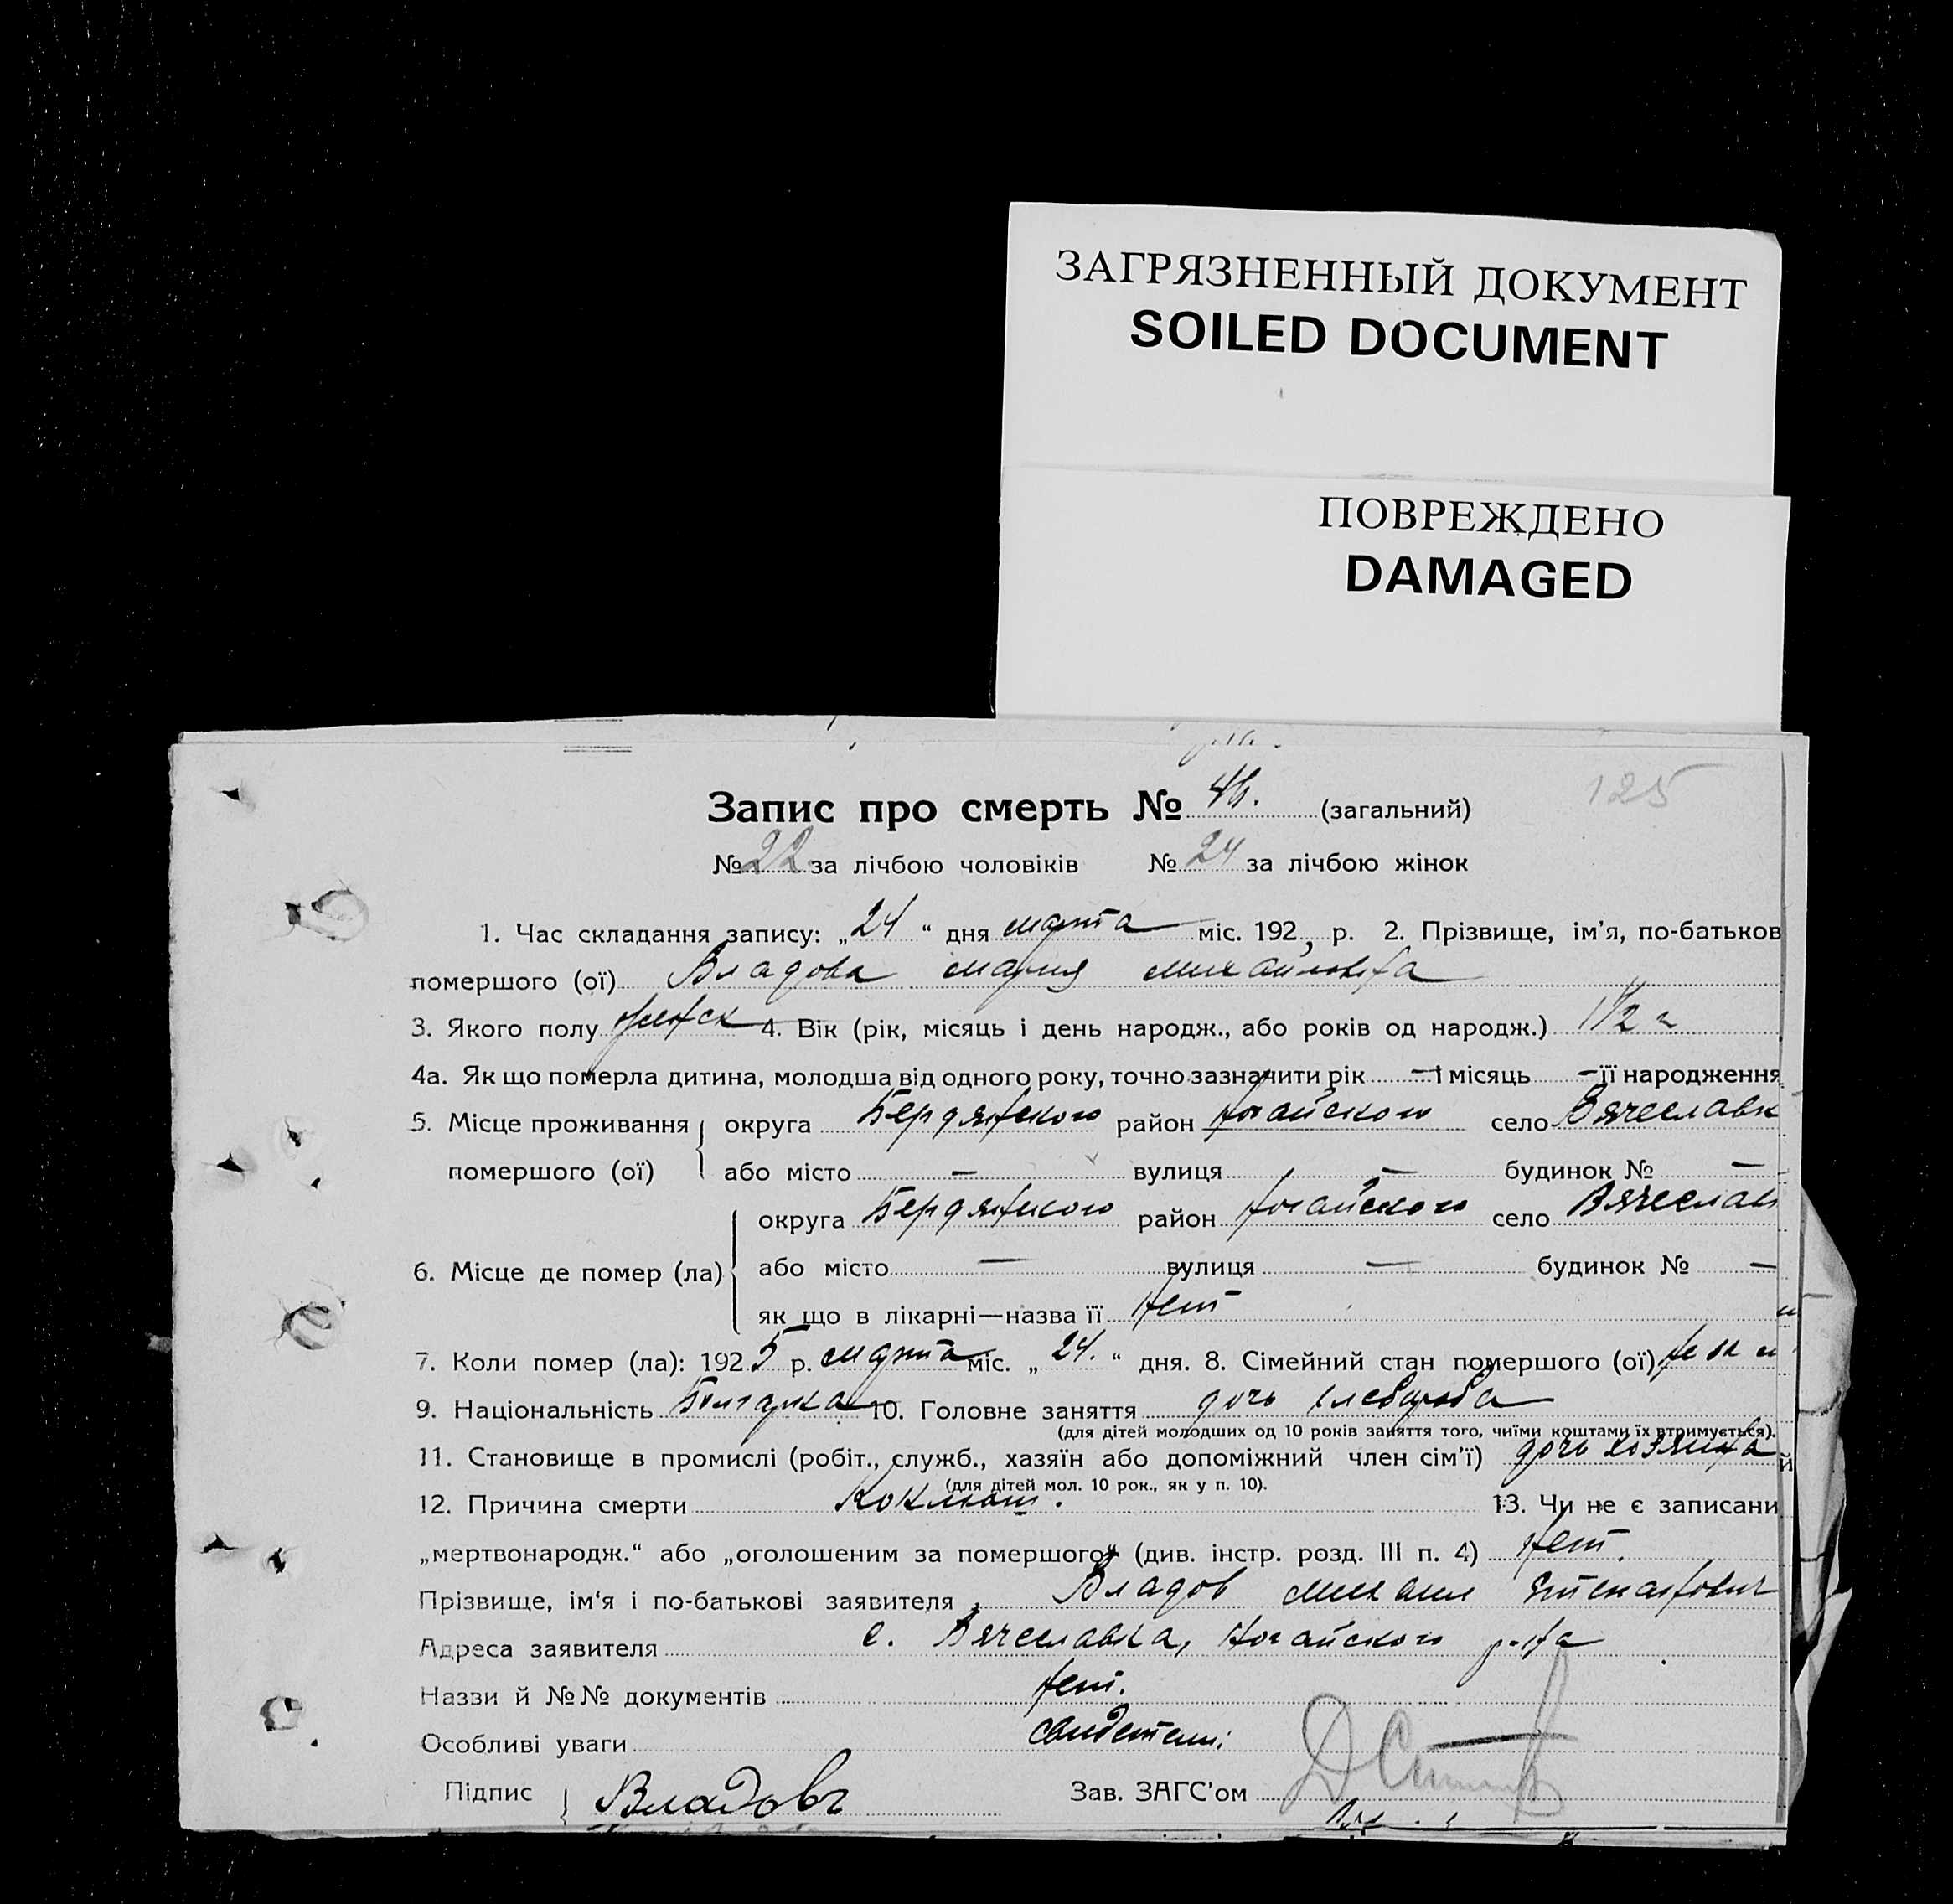 ЗАГРЯЗНЕННЫЙ ДОКУМЕНТ
SOILED DOCUMENT
ПОВРЕЖДЕНО
DAMAGED
125
Запис про смерть № 46. (загальний)
№ 22 за лічбою чоловіків № 24 за лічбою жінок
1. Час складання запису: „24“ дня марта міс. 192 р. 2. Прізвище, ім’я, по-батьков
помершого (ої) Владова Мария Михайловна
3. Якого полу женск 4. Вік (рік, місяць і день народж., або років од народж.) 1 1/2 г
4а. Як що померла дитина, молодша від одного року, точно зазначити рік — і місяць — її народження
5. Місце проживання округа Бердянского район Ногайского село Вячеславк
помершого (ої) або місто — вулиця — будинок № —
округа Бердянского район Ногайского село Вячеслав
6. Місце де помер (ла) або місто — вулиця — будинок № —
як що в лікарні—назва її Нет
7. Коли помер (ла): 1925 р. марта міс. „24.“ дня. 8. Сімейний стан помершого (ої)
9. Національність Болгарка 10. Головне заняття дочь хлебороба
(для дітей молодших од 10 років заняття того, чиїми коштами їх втримується).
11. Становище в промислі (робіт., служб., хазяїн або допоміжний член сім’ї) дочь хозяина
(для дітей мол. 10 рок., як у п. 10).
12. Причина смерти Коклюш. 13. Чи не є записани
„мертвонародж.“ або „оголошеним за помершого“ (див. інстр. розд. III п. 4) Нет.
Прізвище, ім‘я і по-батькові заявителя Владов Михаил
Адреса заявителя с. Вячеславка, Ногайского р-на
Назви й №№ документів Нет.
Особливі уваги Свидетели:
Підпис Владовъ Зав. ЗАГС’ом